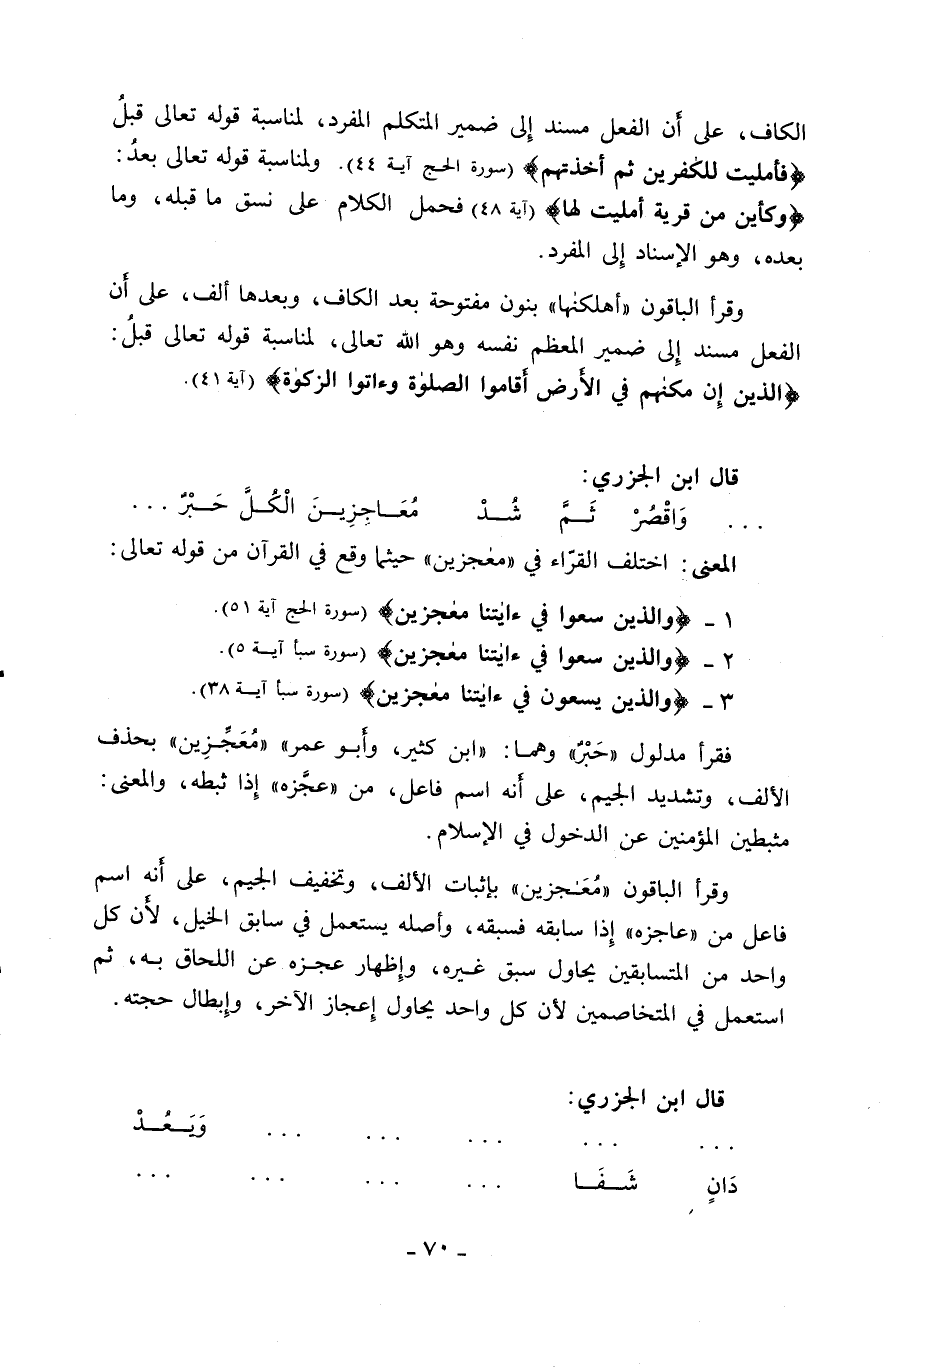 الكاف، على أن الفعل مسند إلى ضمير المتكلم المفرد، لمناسبة قوله تعالى قبلُ
﴿فأمليت للكٰفرين ثم أخذتهم﴾ (سورة الحج آية ٤٤). ولمناسبة قوله تعالى بعدُ:
﴿وكأين من قرية أمليت لها﴾ (آية ٤٨) فحمل الكلام على نسق ما قبله، وما
بعده، وهو الإسناد إلى المفرد.
وقرأ الباقون «أهلكنٰها» بنون مفتوحة بعد الكاف، وبعدها ألف، على أن
الفعل مسند إلى ضمير المعظم نفسه وهو الله تعالى، لمناسبة قوله تعالى قبلُ:
﴿الذين إن مكنٰهم في الأرض أقاموا الصلوٰة وءاتوا الزكوٰة﴾ (آية ٤١).
قال ابن الجزري:
... وَاقْصُرْ ثَمَّ شُدْ مُعَاجِزِينَ الْكُلَّ حَبْرٌ ...
المعنى: اختلف القرّاء في «معٰجزين» حيثما وقع في القرآن من قوله تعالى:
١ - ﴿والذين سعوا في ءايٰتنا معٰجزين﴾ (سورة الحج آية ٥١).
٢ - ﴿والذين سعوا في ءايٰتنا معٰجزين﴾ (سورة سبأ آية ٥).
٣ - ﴿والذين يسعون في ءايٰتنا معٰجزين﴾ (سورة سبأ آية ٣٨).
فقرأ مدلول «حَبْرٌ» وهما: «ابن كثير، وأبو عمر» «مُعَجِّزِين» بحذف
الألف، وتشديد الجيم، على أنه اسم فاعل، من «عجَّزه» إذا ثبطه، والمعنى:
مثبطين المؤمنين عن الدخول في الإسلام.
وقرأ الباقون «مُعَـٰجزين» بإثبات الألف، وتخفيف الجيم، على أنه اسم
فاعل من «عاجزه» إذا سابقه فسبقه، وأصله يستعمل في سابق الخيل، لأن كل
واحد من المتسابقين يحاول سبق غيره، وإظهار عجزه عن اللحاق به، ثم
استعمل في المتخاصمين لأن كل واحد يحاول إعجاز الآخر، وإبطال حجته.
قال ابن الجزري:
... ... ... ... ... وَيَعُدْ
دَانٍ شَفَا ... ... ... ...
- ٧٠ -